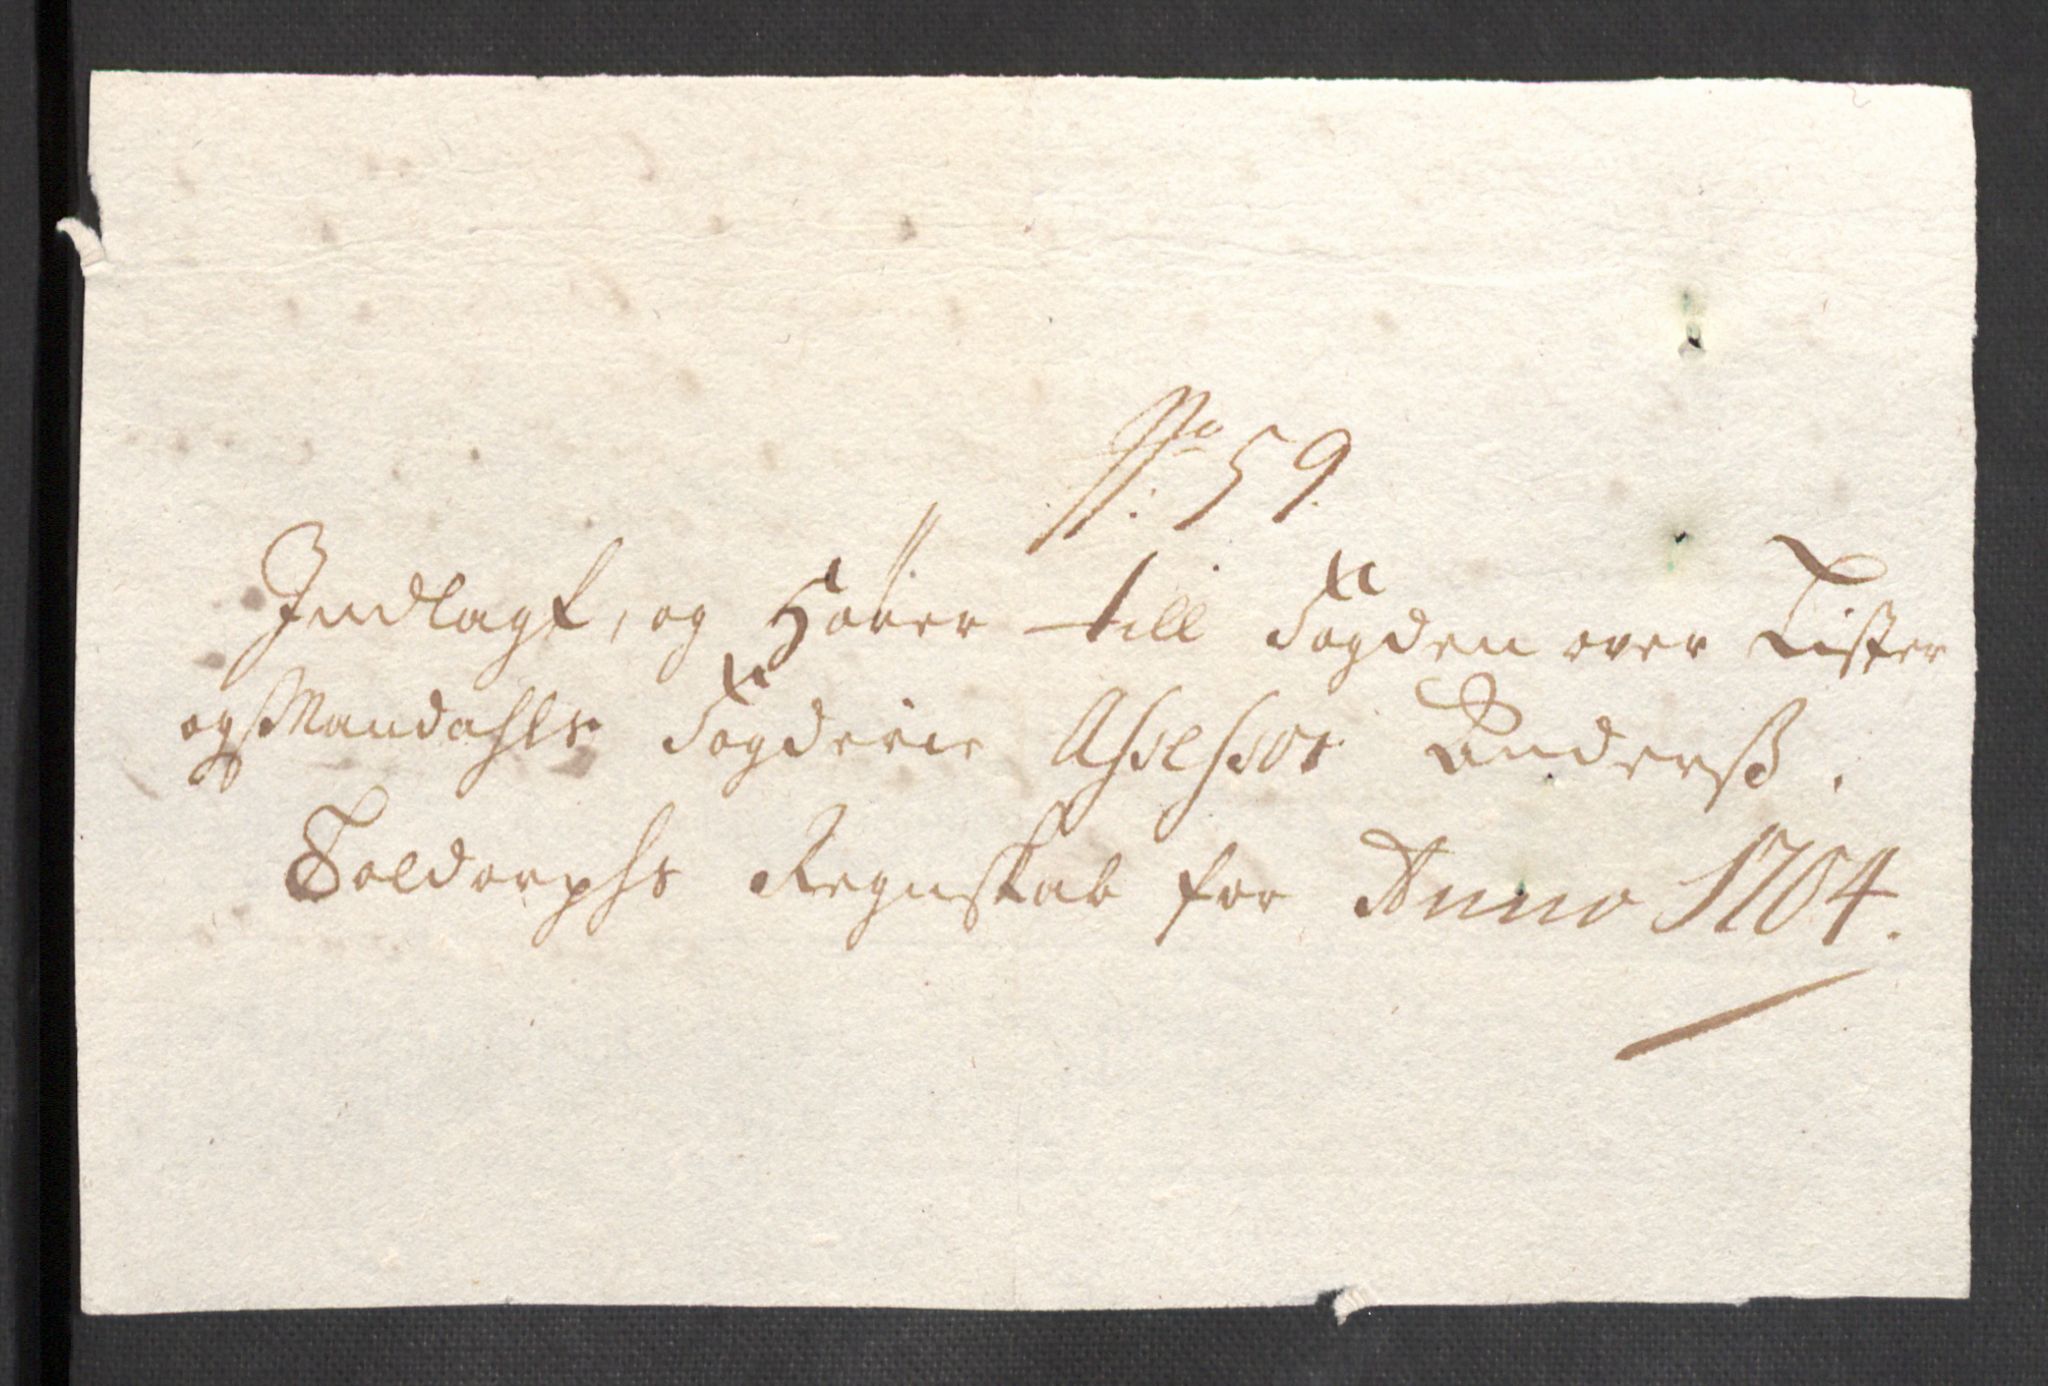 No: 59.
Indlagt, og Hører till Fogden over Lister
og Mandahls Fogderie Assessor Anderß.
Toldorphs Regnskab for Anno 1704.